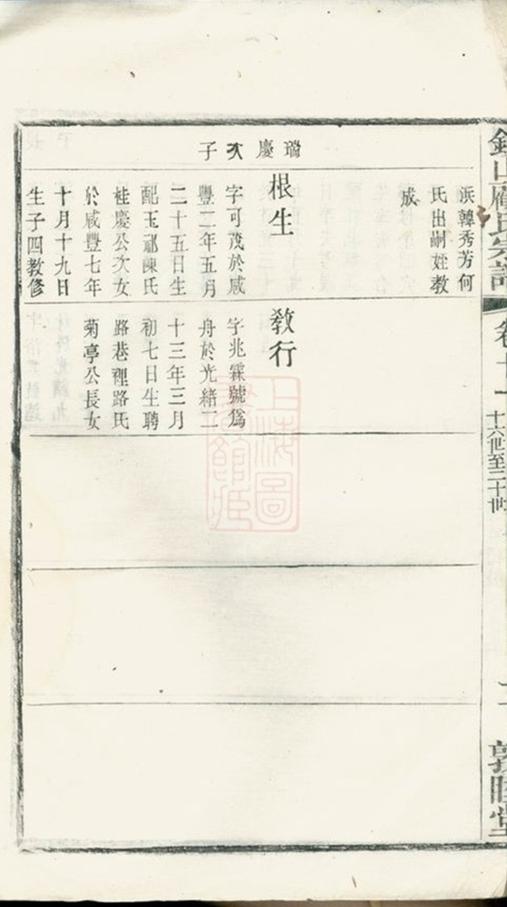 子次慶瑞
浜韓秀芳何
氏出嗣姪教
成
根生
字可茂於咸
豐二年五月
二十五日生
配玉祁陳氏
桂慶公次女
於咸豐七年
十月十九日
生子四教修
教行
字兆霖號爲
舟於光緒二
十三年三月
初七日生聘
路巷裡路氏
菊亭公長女
山顧氏宗譜
卷十一
十六世至二十世
敦睦堂
上海圖